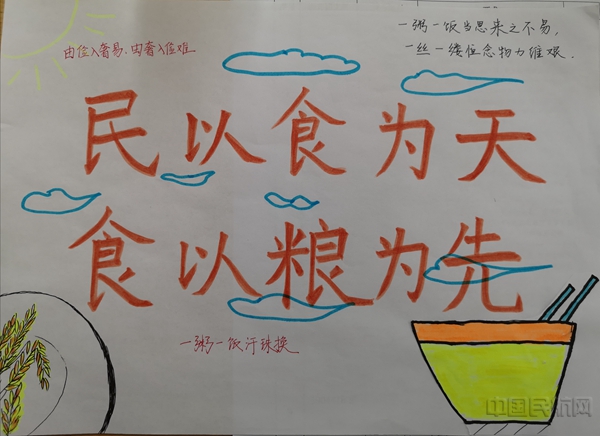 由俭入奢易、由奢入俭难
一粥一饭当思来之不易，
一丝一缕恒念物力维艰.
民以食为天
食以粮为先
一粥一饭汗珠换
中国民航网